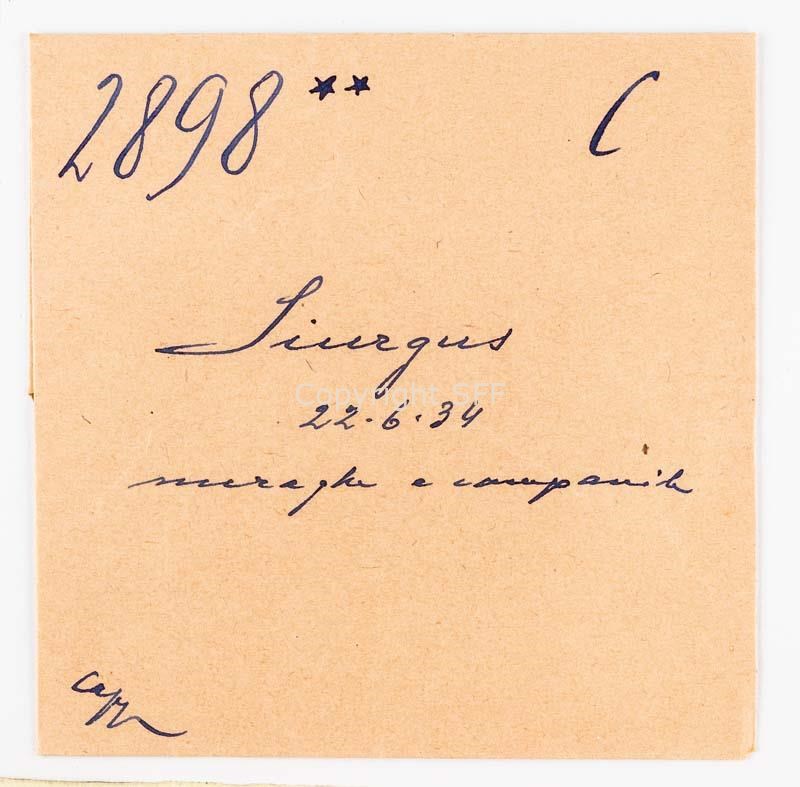 2898 ** C
Siurgus
Copyright SFF
22.6.34
nuraghe e campanile